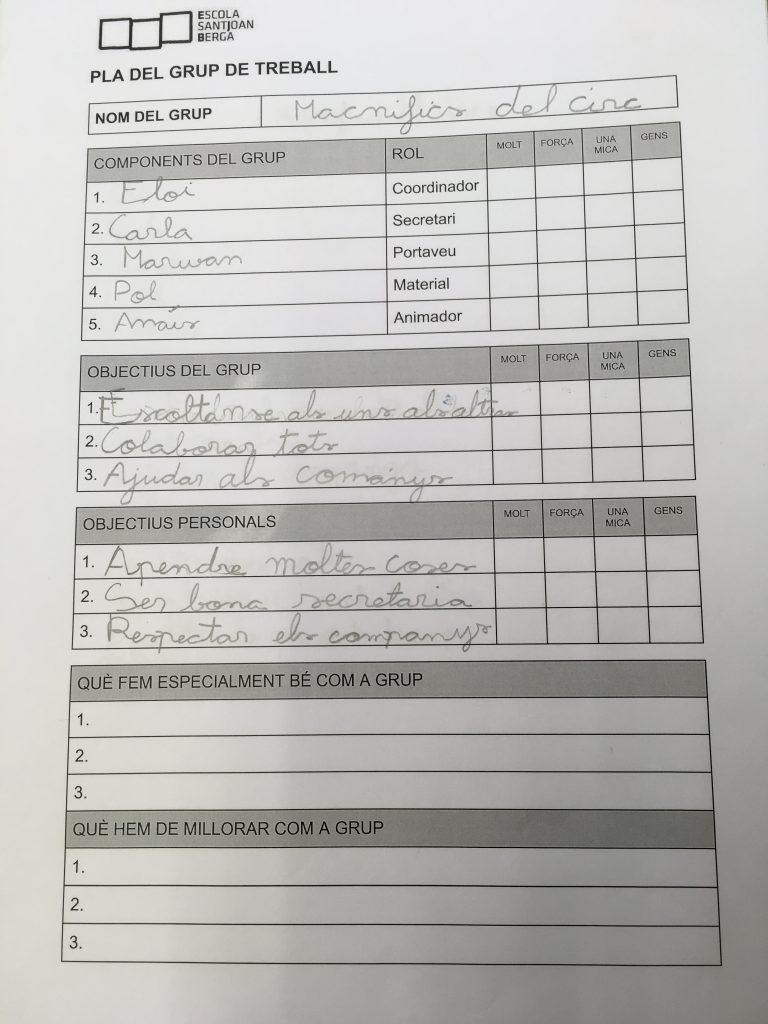 ESCOLA
SANTJOAN
BERGA
PLA DEL GRUP DE TREBALL
NOM DEL GRUP Macnifics del circ
COMPONENTS DEL GRUP ROL MOLT FORÇA UNA MICA GENS
1. Eloi Coordinador
2. Carla Secretari
3. Marwan Portaveu
4. Pol Material
5. Anaïs Animador
OBJECTIUS DEL GRUP MOLT FORÇA UNA MICA GENS
1. Escoltànse als uns als altres
2. Colaborar tots
3. Ajudar als comanys
OBJECTIUS PERSONALS MOLT FORÇA UNA MICA GENS
1. Apendre moltes coses
2. Ser bona secretaria
3. Respectar els companys
QUÈ FEM ESPECIALMENT BÉ COM A GRUP
1.
2.
3.
QUÈ HEM DE MILLORAR COM A GRUP
1.
2.
3.